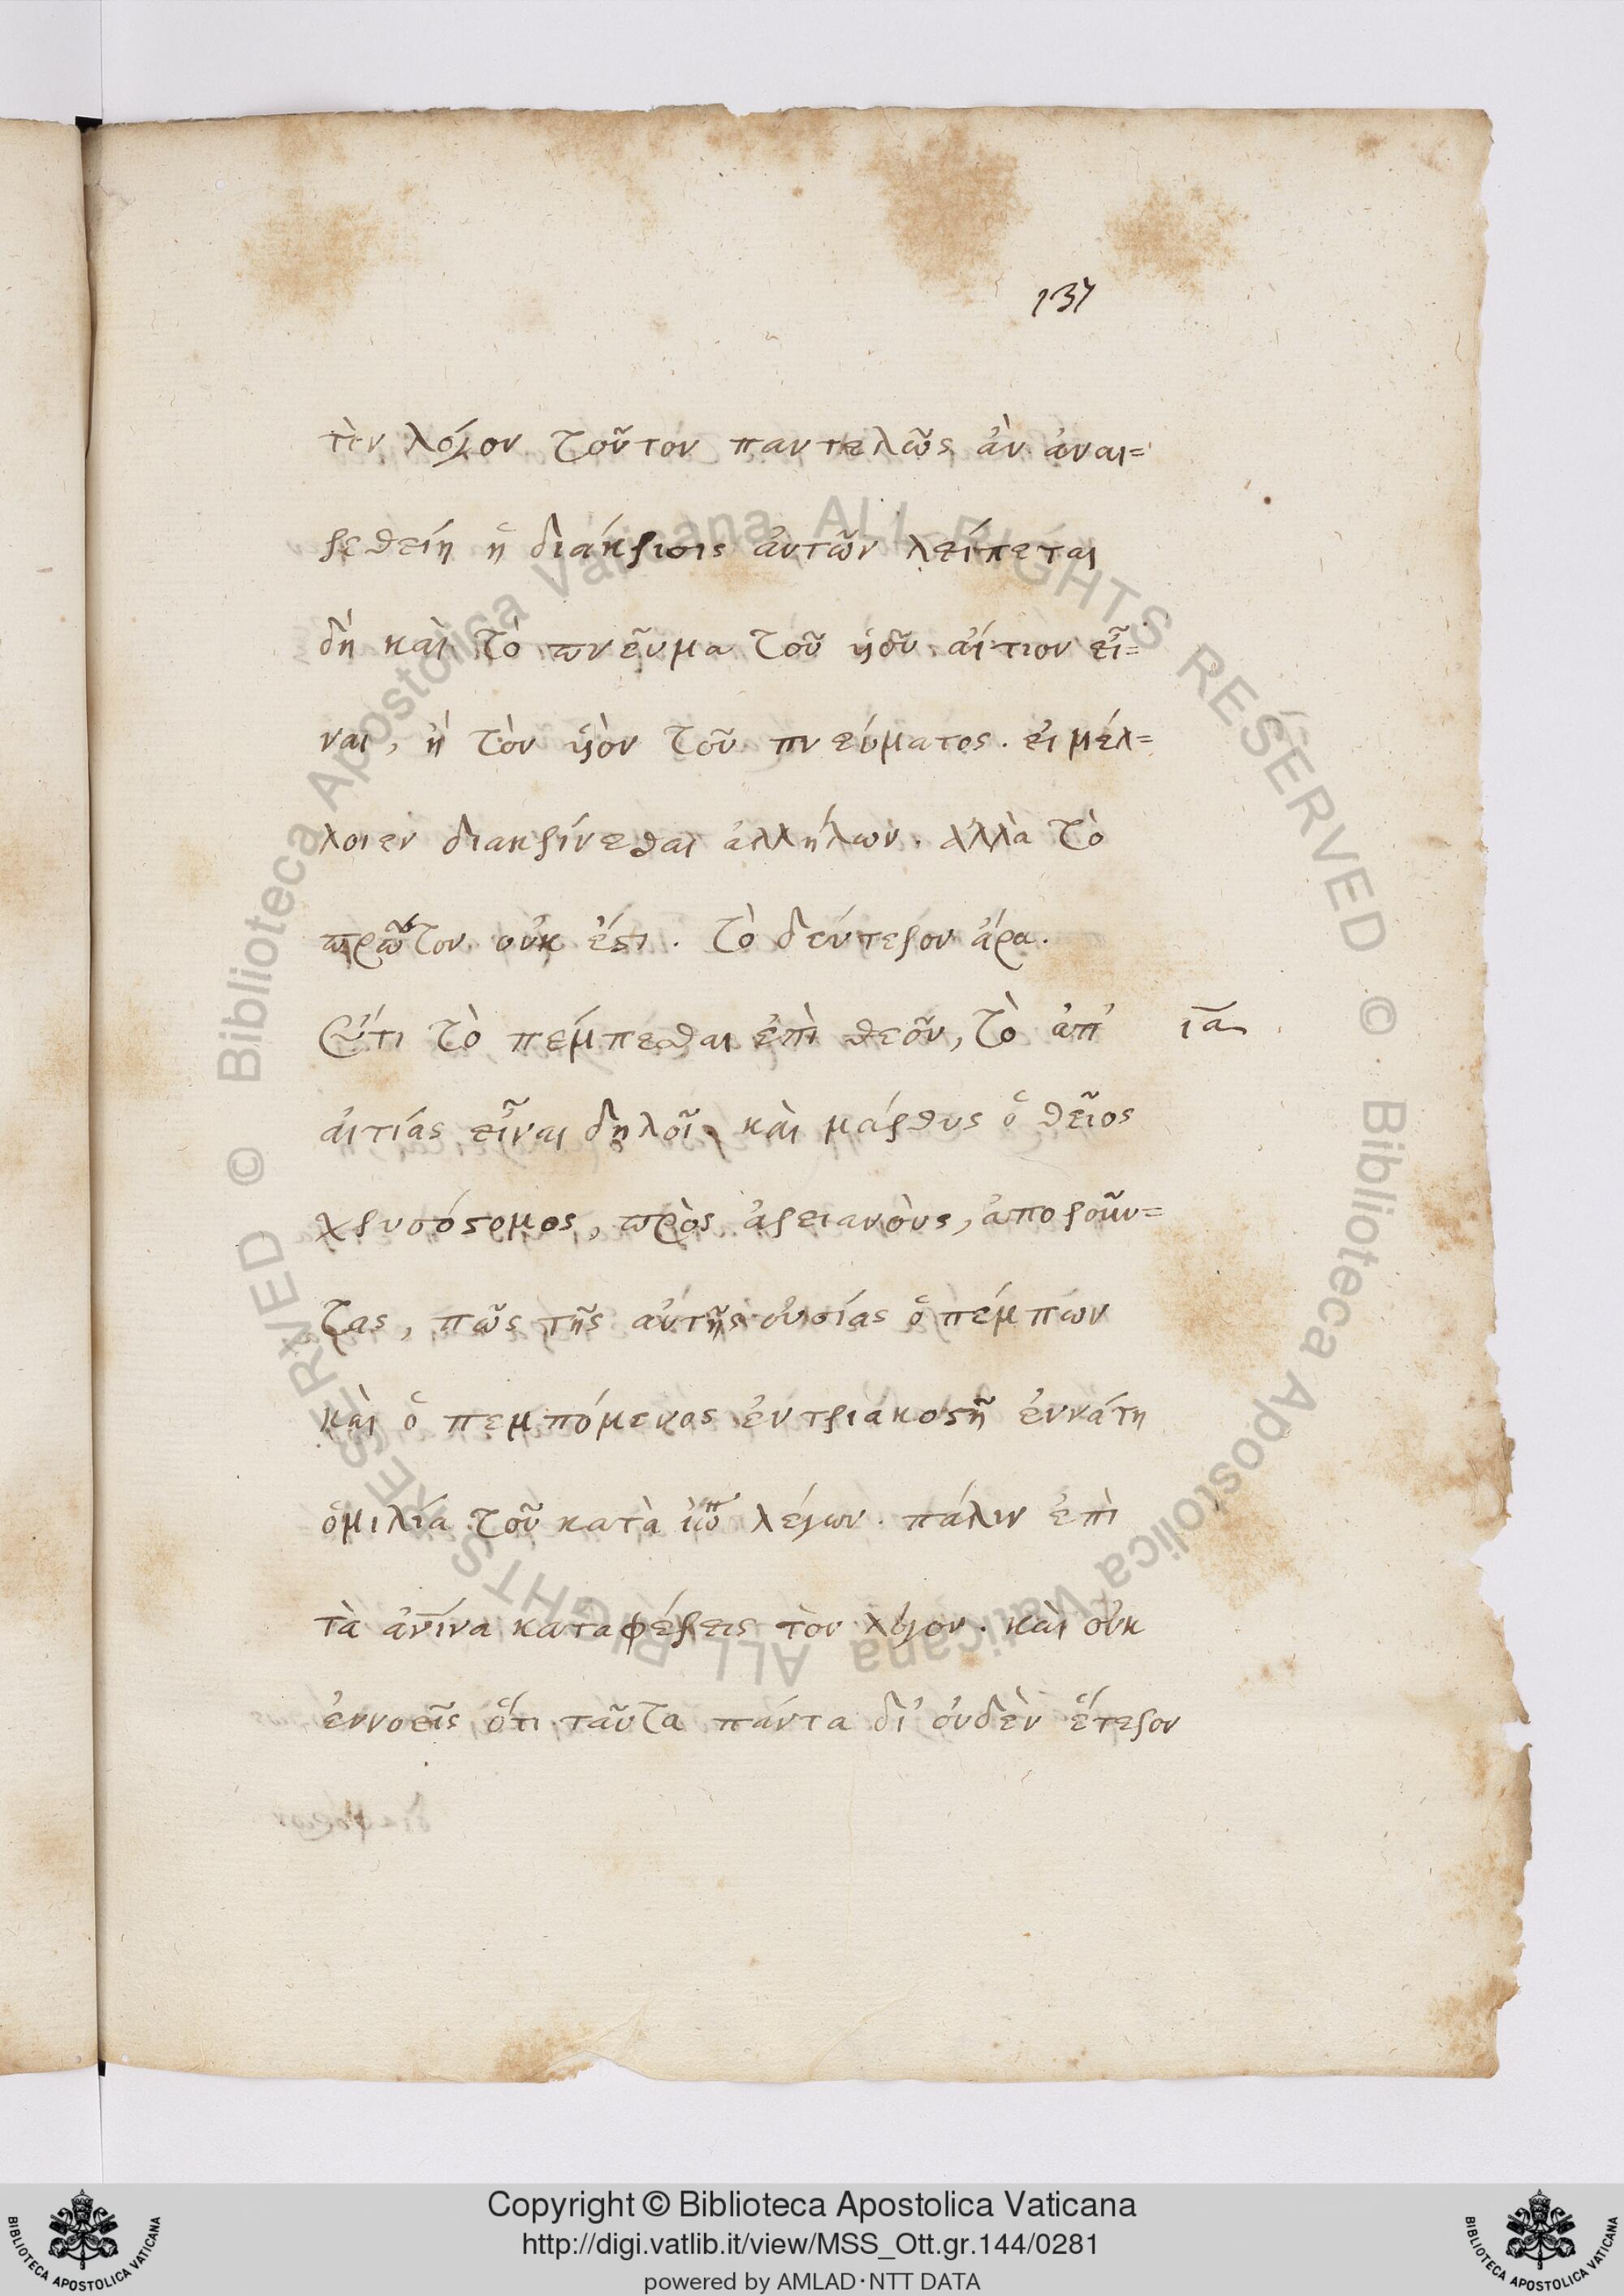 137
τὸν λόγον τοῦτον παντελῶς ἂν ἀναι=
ρεθείη ἡ διάκρισις ἀυτῶν λείπεται
δὴ καὶ τὸ πνεῦμα τοῦ ὑιοῦ ἀίτιον εἶ=
ναι, ἢ τὸν ὑιὸν τοῦ πνεύματος. ει μέλ=
λοιεν διακρίνεσθαι ἀλλήλων. ἀλλὰ τὸ
πρῶτον οὐκ έστι. τὸ δεύτερον ἄρα.
Ὅτι τὸ πέμπεσθαι ἐπὶ θεοῦ, τὸ ἀπ' ια
ἀιτίας εἶναι δηλοῖ, καὶ μάρθυς ὁ θεῖος
χρυσόστομος, πρὸς ἀρειανοὺς, ἀποροῦν=
τας, πῶς τῆς ἀυτῆς οὐσίας ὁ πέμπων
καὶ ὁ πεμπόμενος ἐν τριακοστῆ ἐννάτη
ὁμιλία τοῦ κατὰ ἰω λέγων. πάλιν ἐπὶ
τὰ ἀνινα καταφέρεις τὸν λόγον. καὶ οὐκ
ἐννοεῖς ὅτι ταῦτα πάντα δι' ὀυδὲν ἕτερον
Copyright © Biblioteca Apostolica Vaticana
http://digi.vatlib.it/view/MSS_Ott.gr.144/0281
powered by AMLAD·NTT DATA
BIBLIOTECA APOSTOLICA VATICANA
BIBLIOTECA APOSTOLICA VATICANA
© Biblioteca Apostolica Vaticana ALL RIGHTS RESERVED © Biblioteca Apostolica Vaticana ALL RIGHTS RESERVED